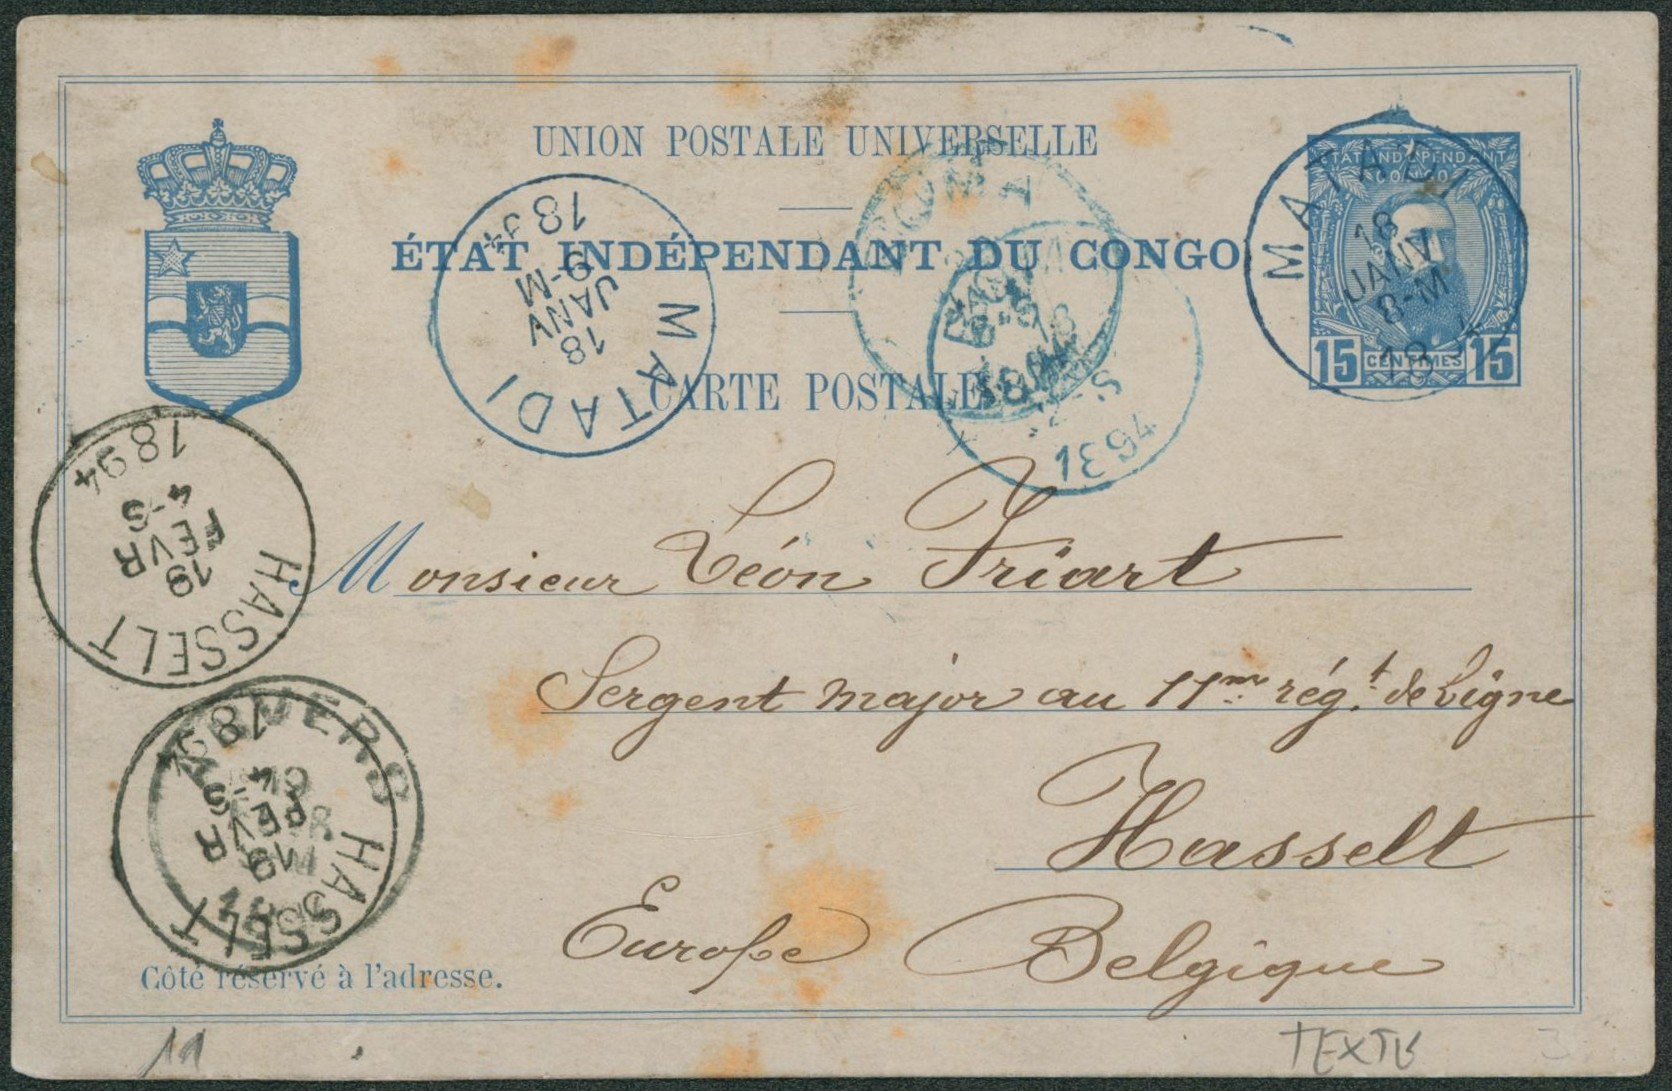 UNION POSTALE UNIVERSELLE
ÉTAT INDÉPENDANT DU CONGO
CARTE POSTALE
ETAT INDEPENDANT
CONGO
15 CENTIMES 15
MATADI
18
JANV
8-M
18
MATADI
18
JANV
9-M
18
BOMA
1894
HASSELT
19
FEVR
4-S
1894
Monsieur Léon Friart
Sergent major au 11me régt. de Ligne
Hasselt
Europe Belgique
ANVERS
HASSELT
19
FEVR
4-S
189
Côté réservé à l'adresse.
11
TEXTE
3